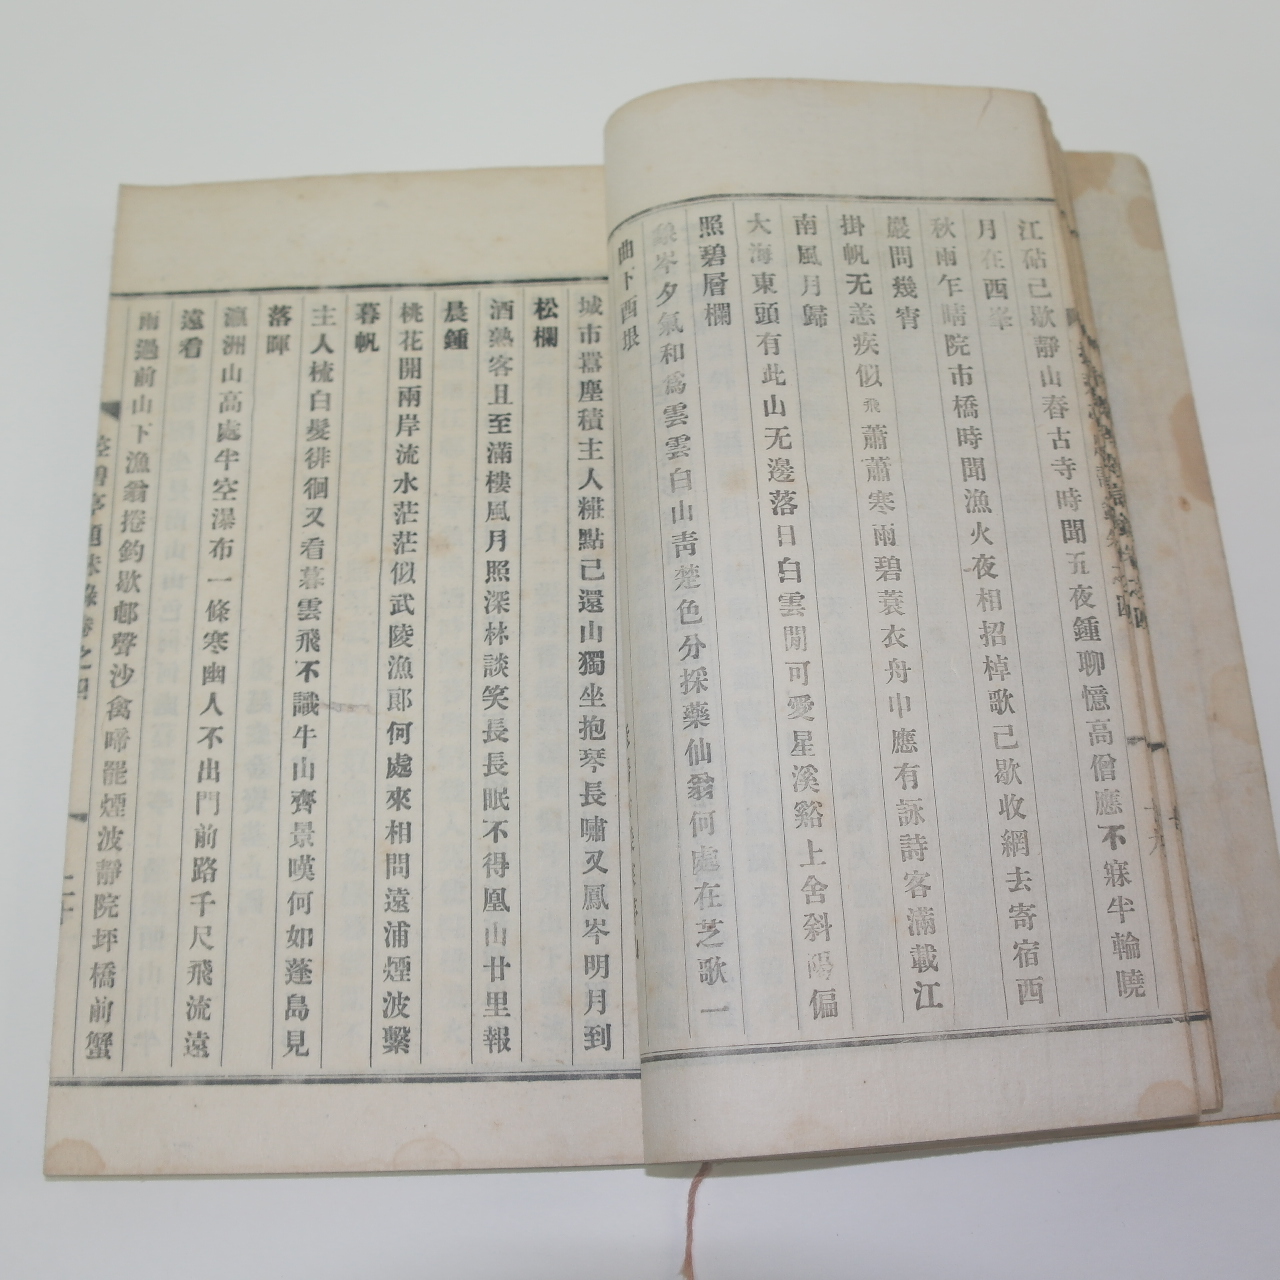 江砧已歇靜山春古寺時聞五夜鍾聊憶高僧應不寐半輪曉
月在西峯
秋雨乍晴院市橋時聞漁火夜相招棹歌已歇收網去寄宿西
巖問幾宵
掛帆无恙疾似飛蕭蕭寒雨碧蓑衣舟中應有詠詩客滿載江
南風月歸
大海東頭有此山无邊落日白雲閒可愛星溪谿上舍斜陽偏
照碧層欄
岑夕氣和爲雲雲白山靑楚色分採藥仙翁何處在芝歌一
曲下西
城市囂塵積主人糚點已還山獨坐抱琴長嘯又鳳岑明月到
松欄
酒熟客且至滿樓風月照深林談笑長長眠不得凰山廿里報
晨鍾
桃花開兩岸流水茫茫似武陵漁郞何處來相問遠浦煙波繫
暮帆
主人梳白髮徘徊又看暮雲飛不識牛山齊景嘆何如蓬島見
落暉
瀛洲山高處半空瀑布一條寒幽人不出門前路千尺飛流遠
遠看
雨過前山下漁翁捲釣歇邨聲沙禽啼罷煙波靜院坪橋前蟹
亭題詠錄卷之四
二十